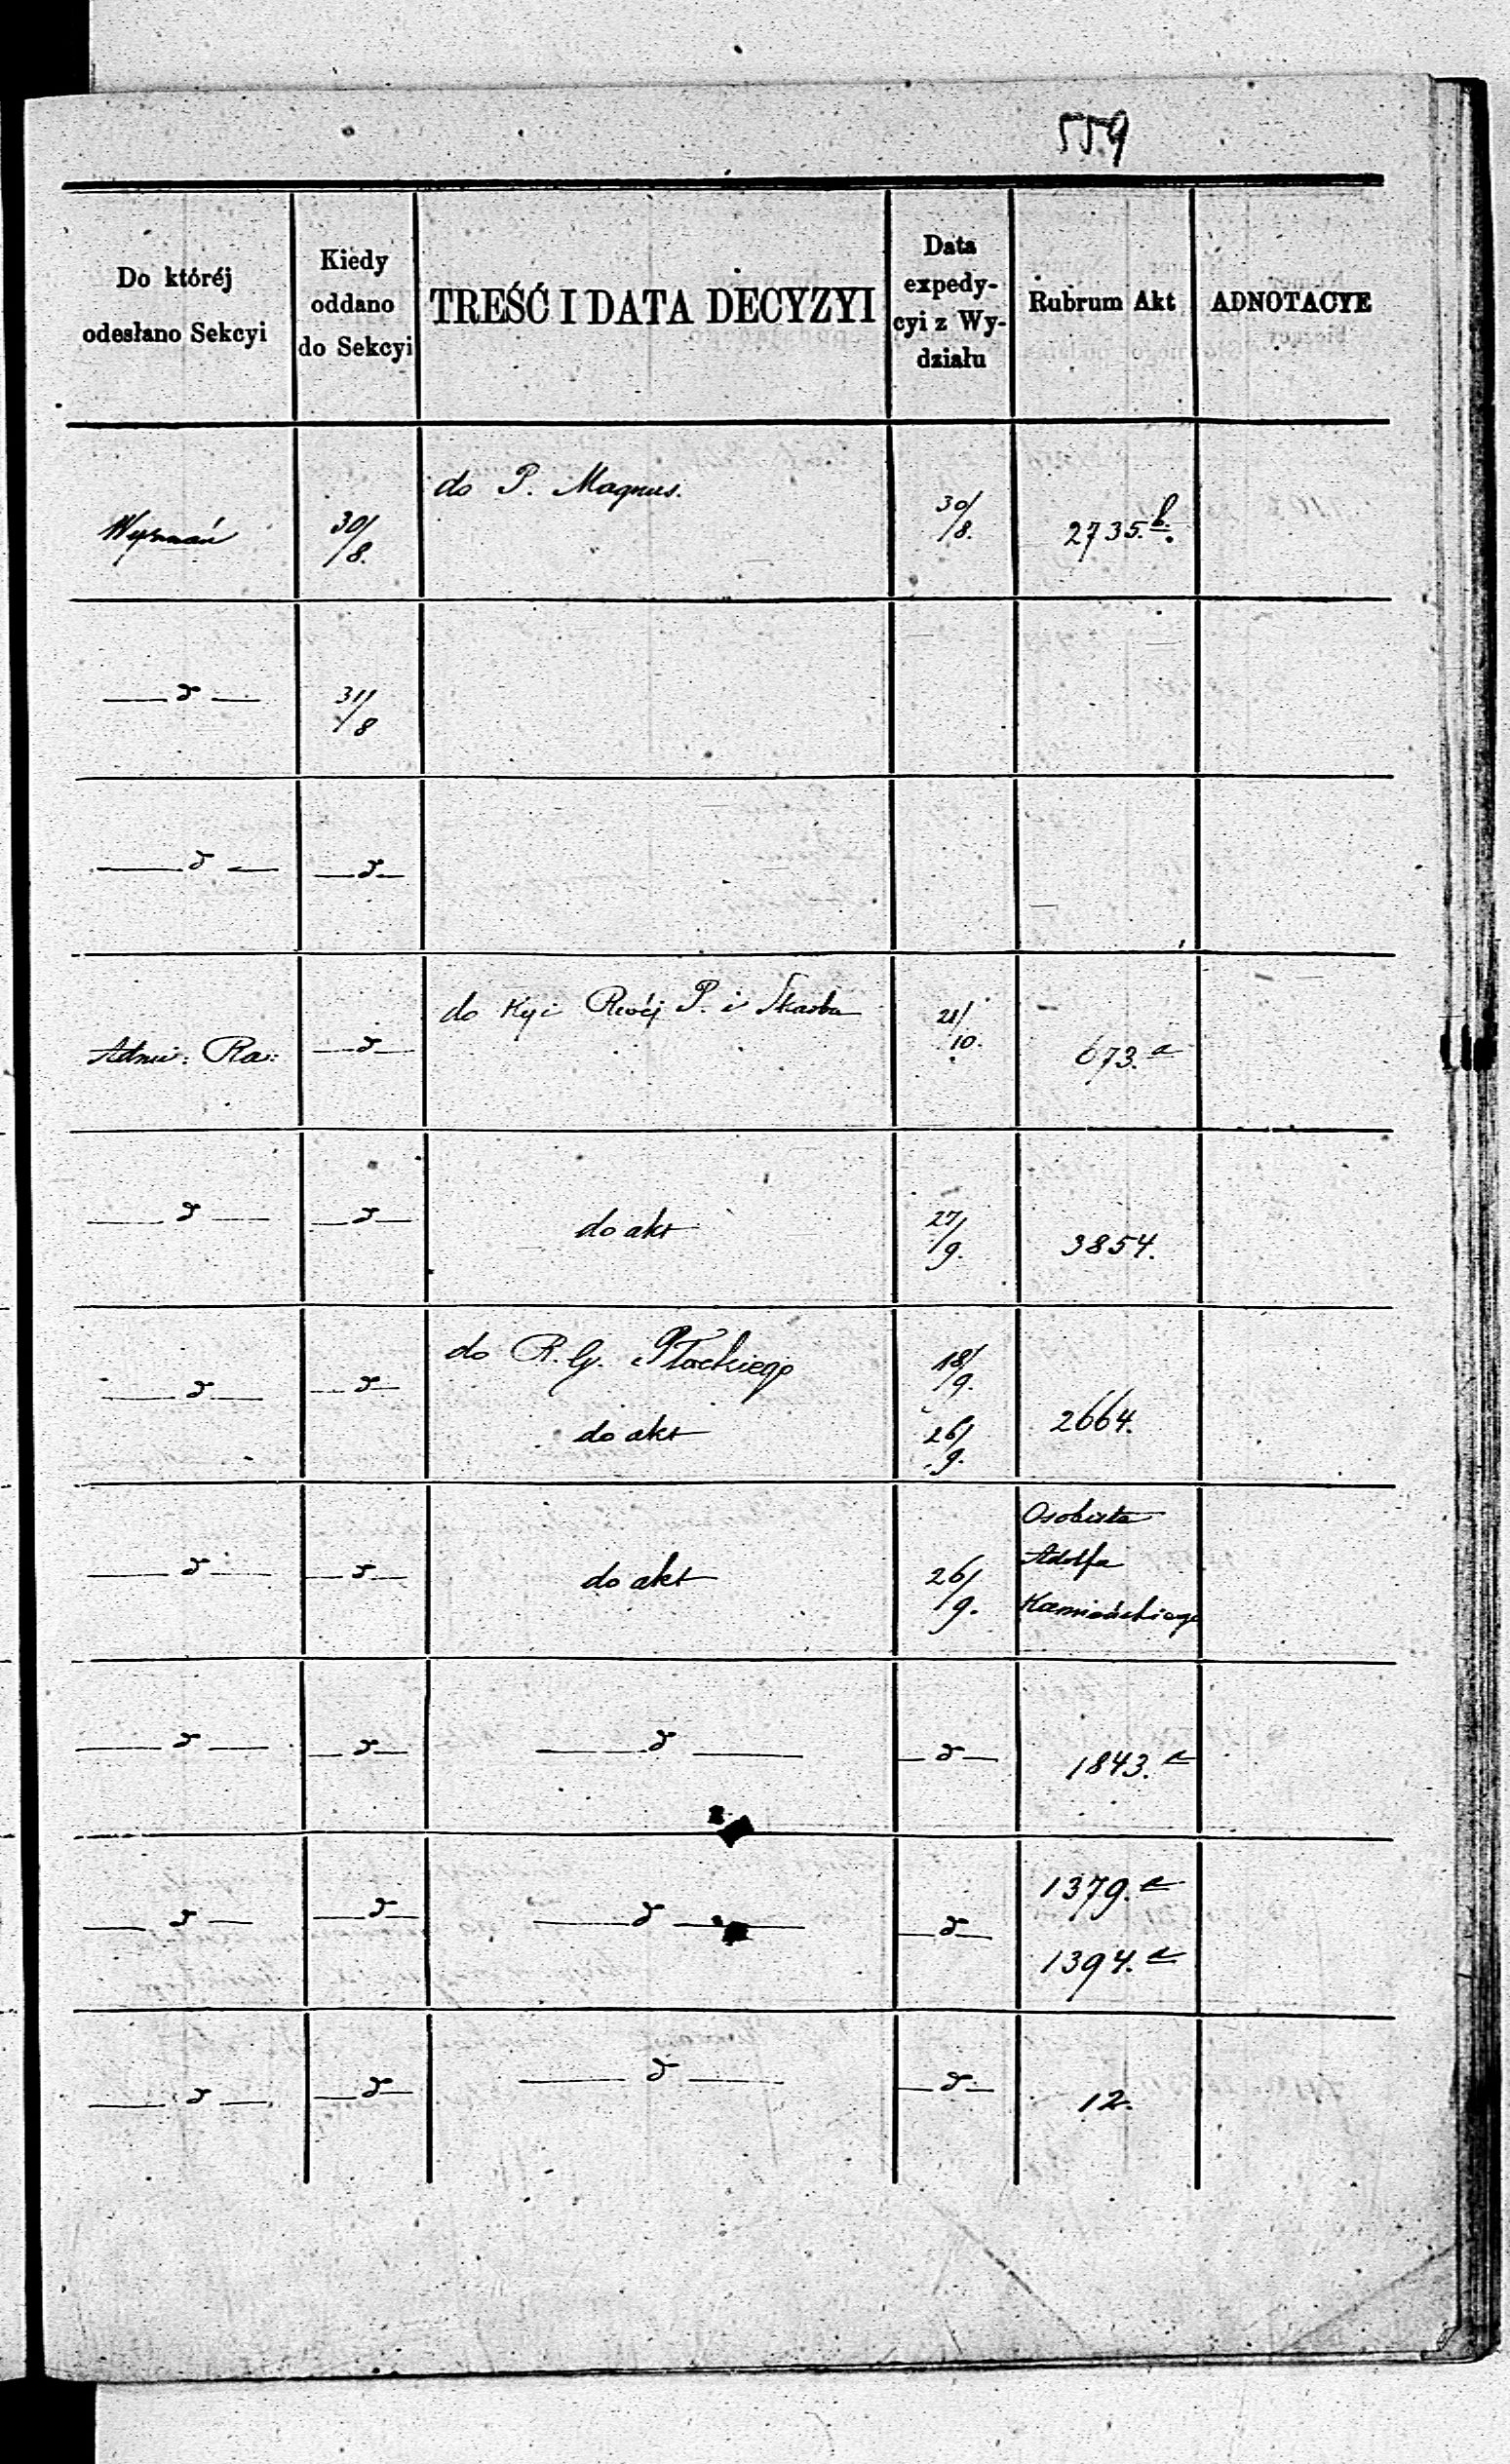 559
Do któréj
odesłano Sekcyi
Kiedy
oddano
do Sekcyi
TREŚĆ I DATA DECYZYI
Data
expedy-
cyi z Wy-
działu
Rubrum Akt
ADNOTACYE
Wyznań
30/8.
do P. Magnus.
30/8.
2735.b.
— d —
31/8
— d —
— d —
Admi: Ra:
— d —
do Kyi Rwéj P. i Skarbu
21/10.
673.a
— d —
— d —
do akt
27/9.
3854.
— d —
— d —
do R. G. Płockiego
18/9.
do akt
26/9.
2664.
— d —
— d —
do akt
26/9.
Osobista
Adolfa
Kamieńskiego
— d —
— d —
— d —
— d —
1843.a
— d —
— d —
— d —
— d —
1379.a
1394.a
— d —
— d —
— d —
— d —
12.